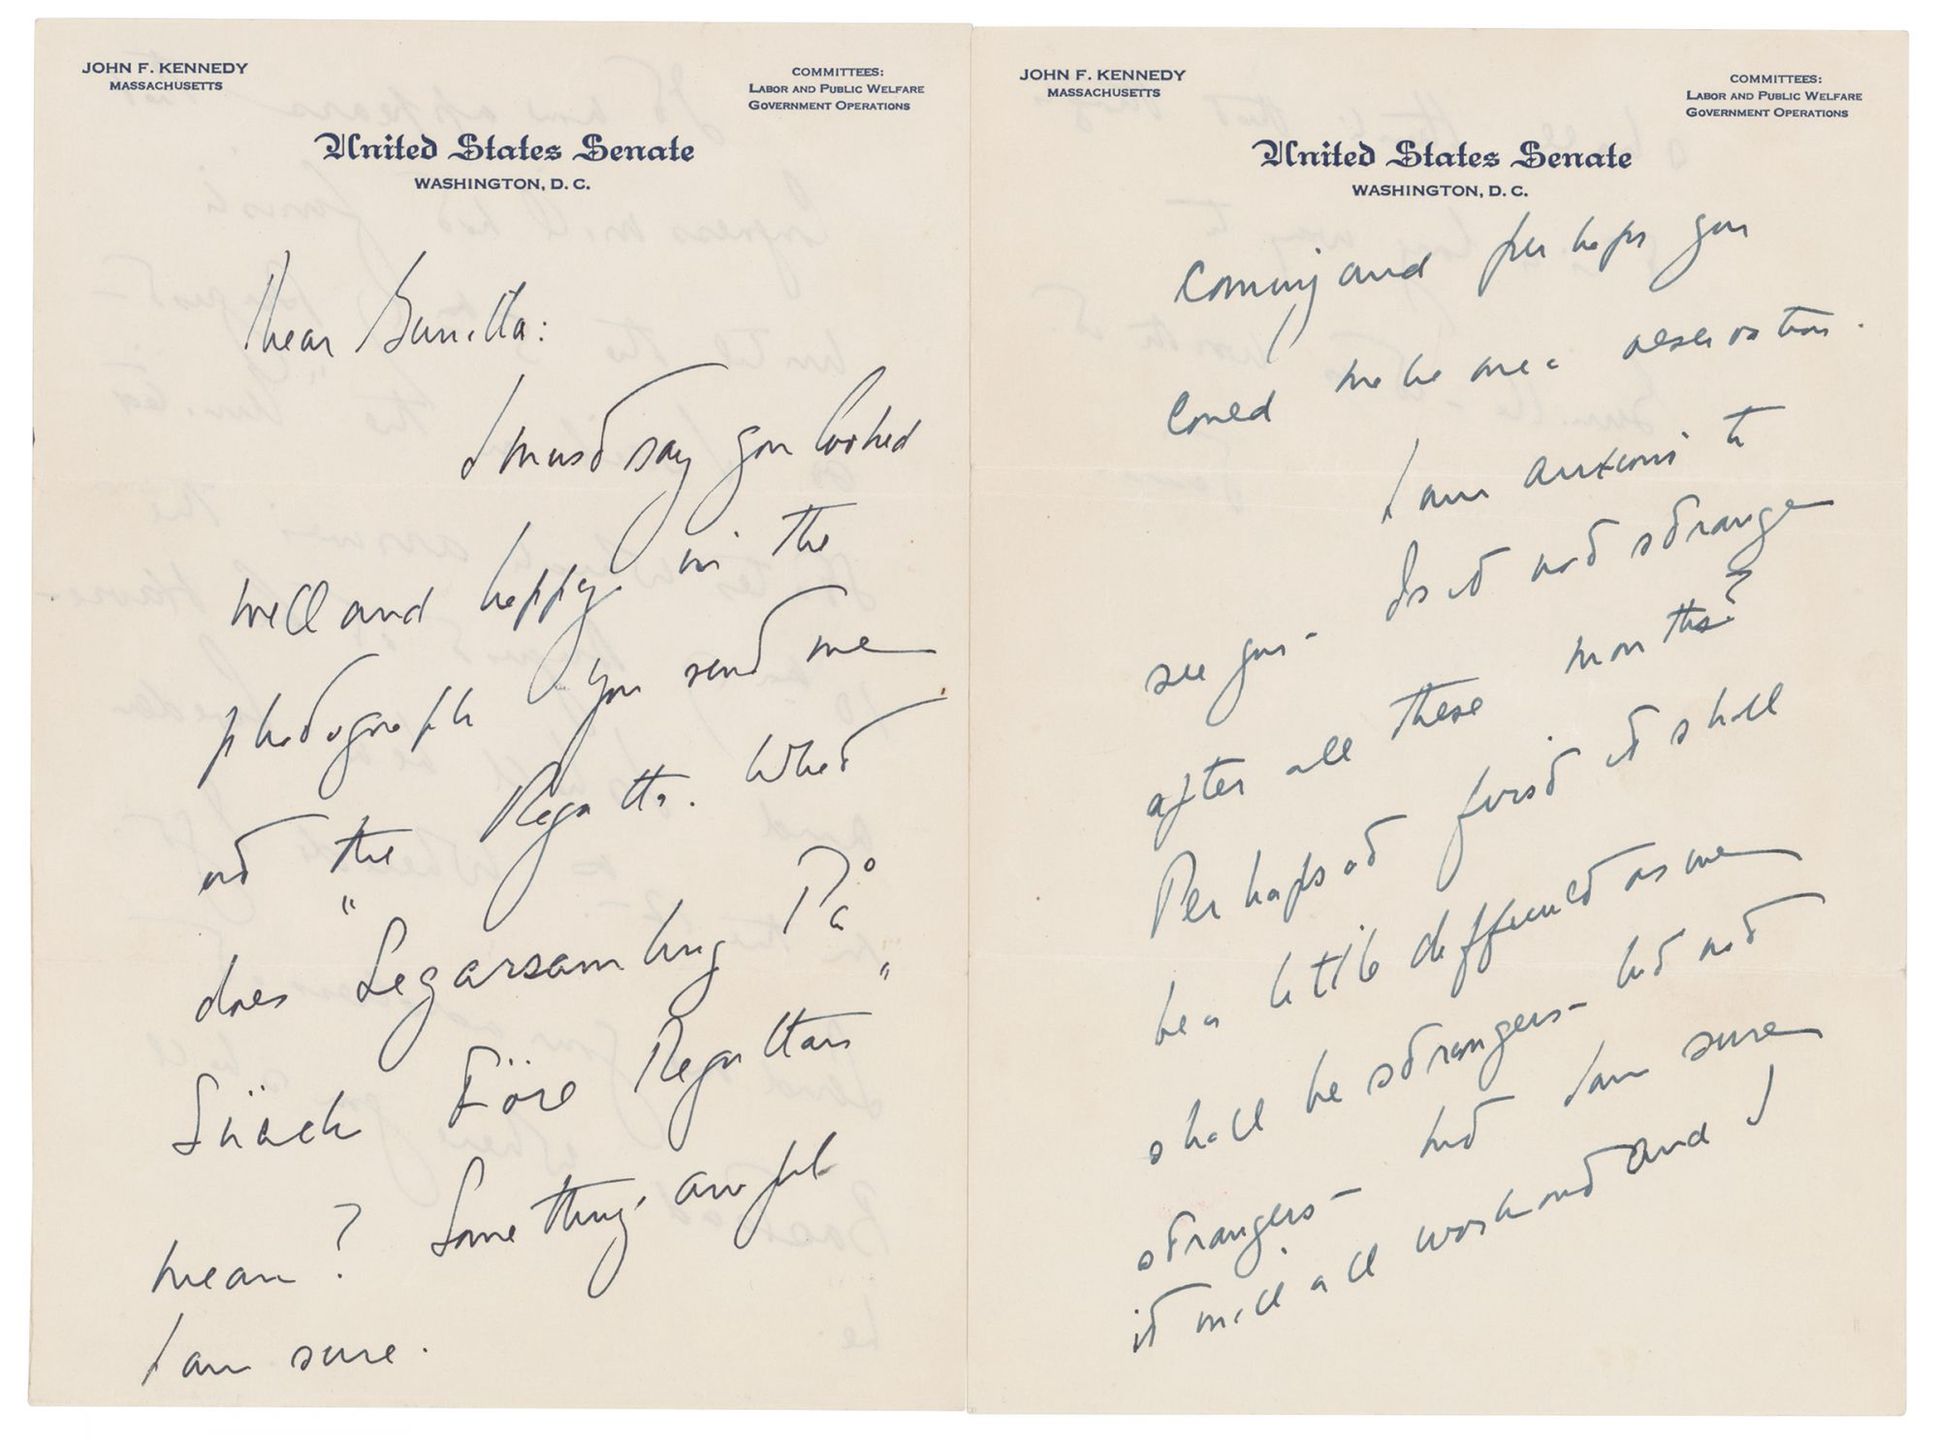 JOHN F. KENNEDY
MASSACHUSETTS
COMMITTEES:
LABOR AND PUBLIC WELFARE
GOVERNMENT OPERATIONS
United States Senate
WASHINGTON, D. C.
Dear Gunilla:
I must say you looked
well and happy in the
photograph you send me
at the Regatta. What
does "Segarsamling På
Snäck Före Regattan"
mean? Something awful
I am sure.
JOHN F. KENNEDY
MASSACHUSETTS
COMMITTEES:
LABOR AND PUBLIC WELFARE
GOVERNMENT OPERATIONS
United States Senate
WASHINGTON, D. C.
coming and perhaps you
could make me a reservation.
I am anxious to
see you - Is it not strange
after all these months?
Perhaps at first it shall
be a little different as we
shall be strangers - but not
strangers - but I am sure
it will all work out and I